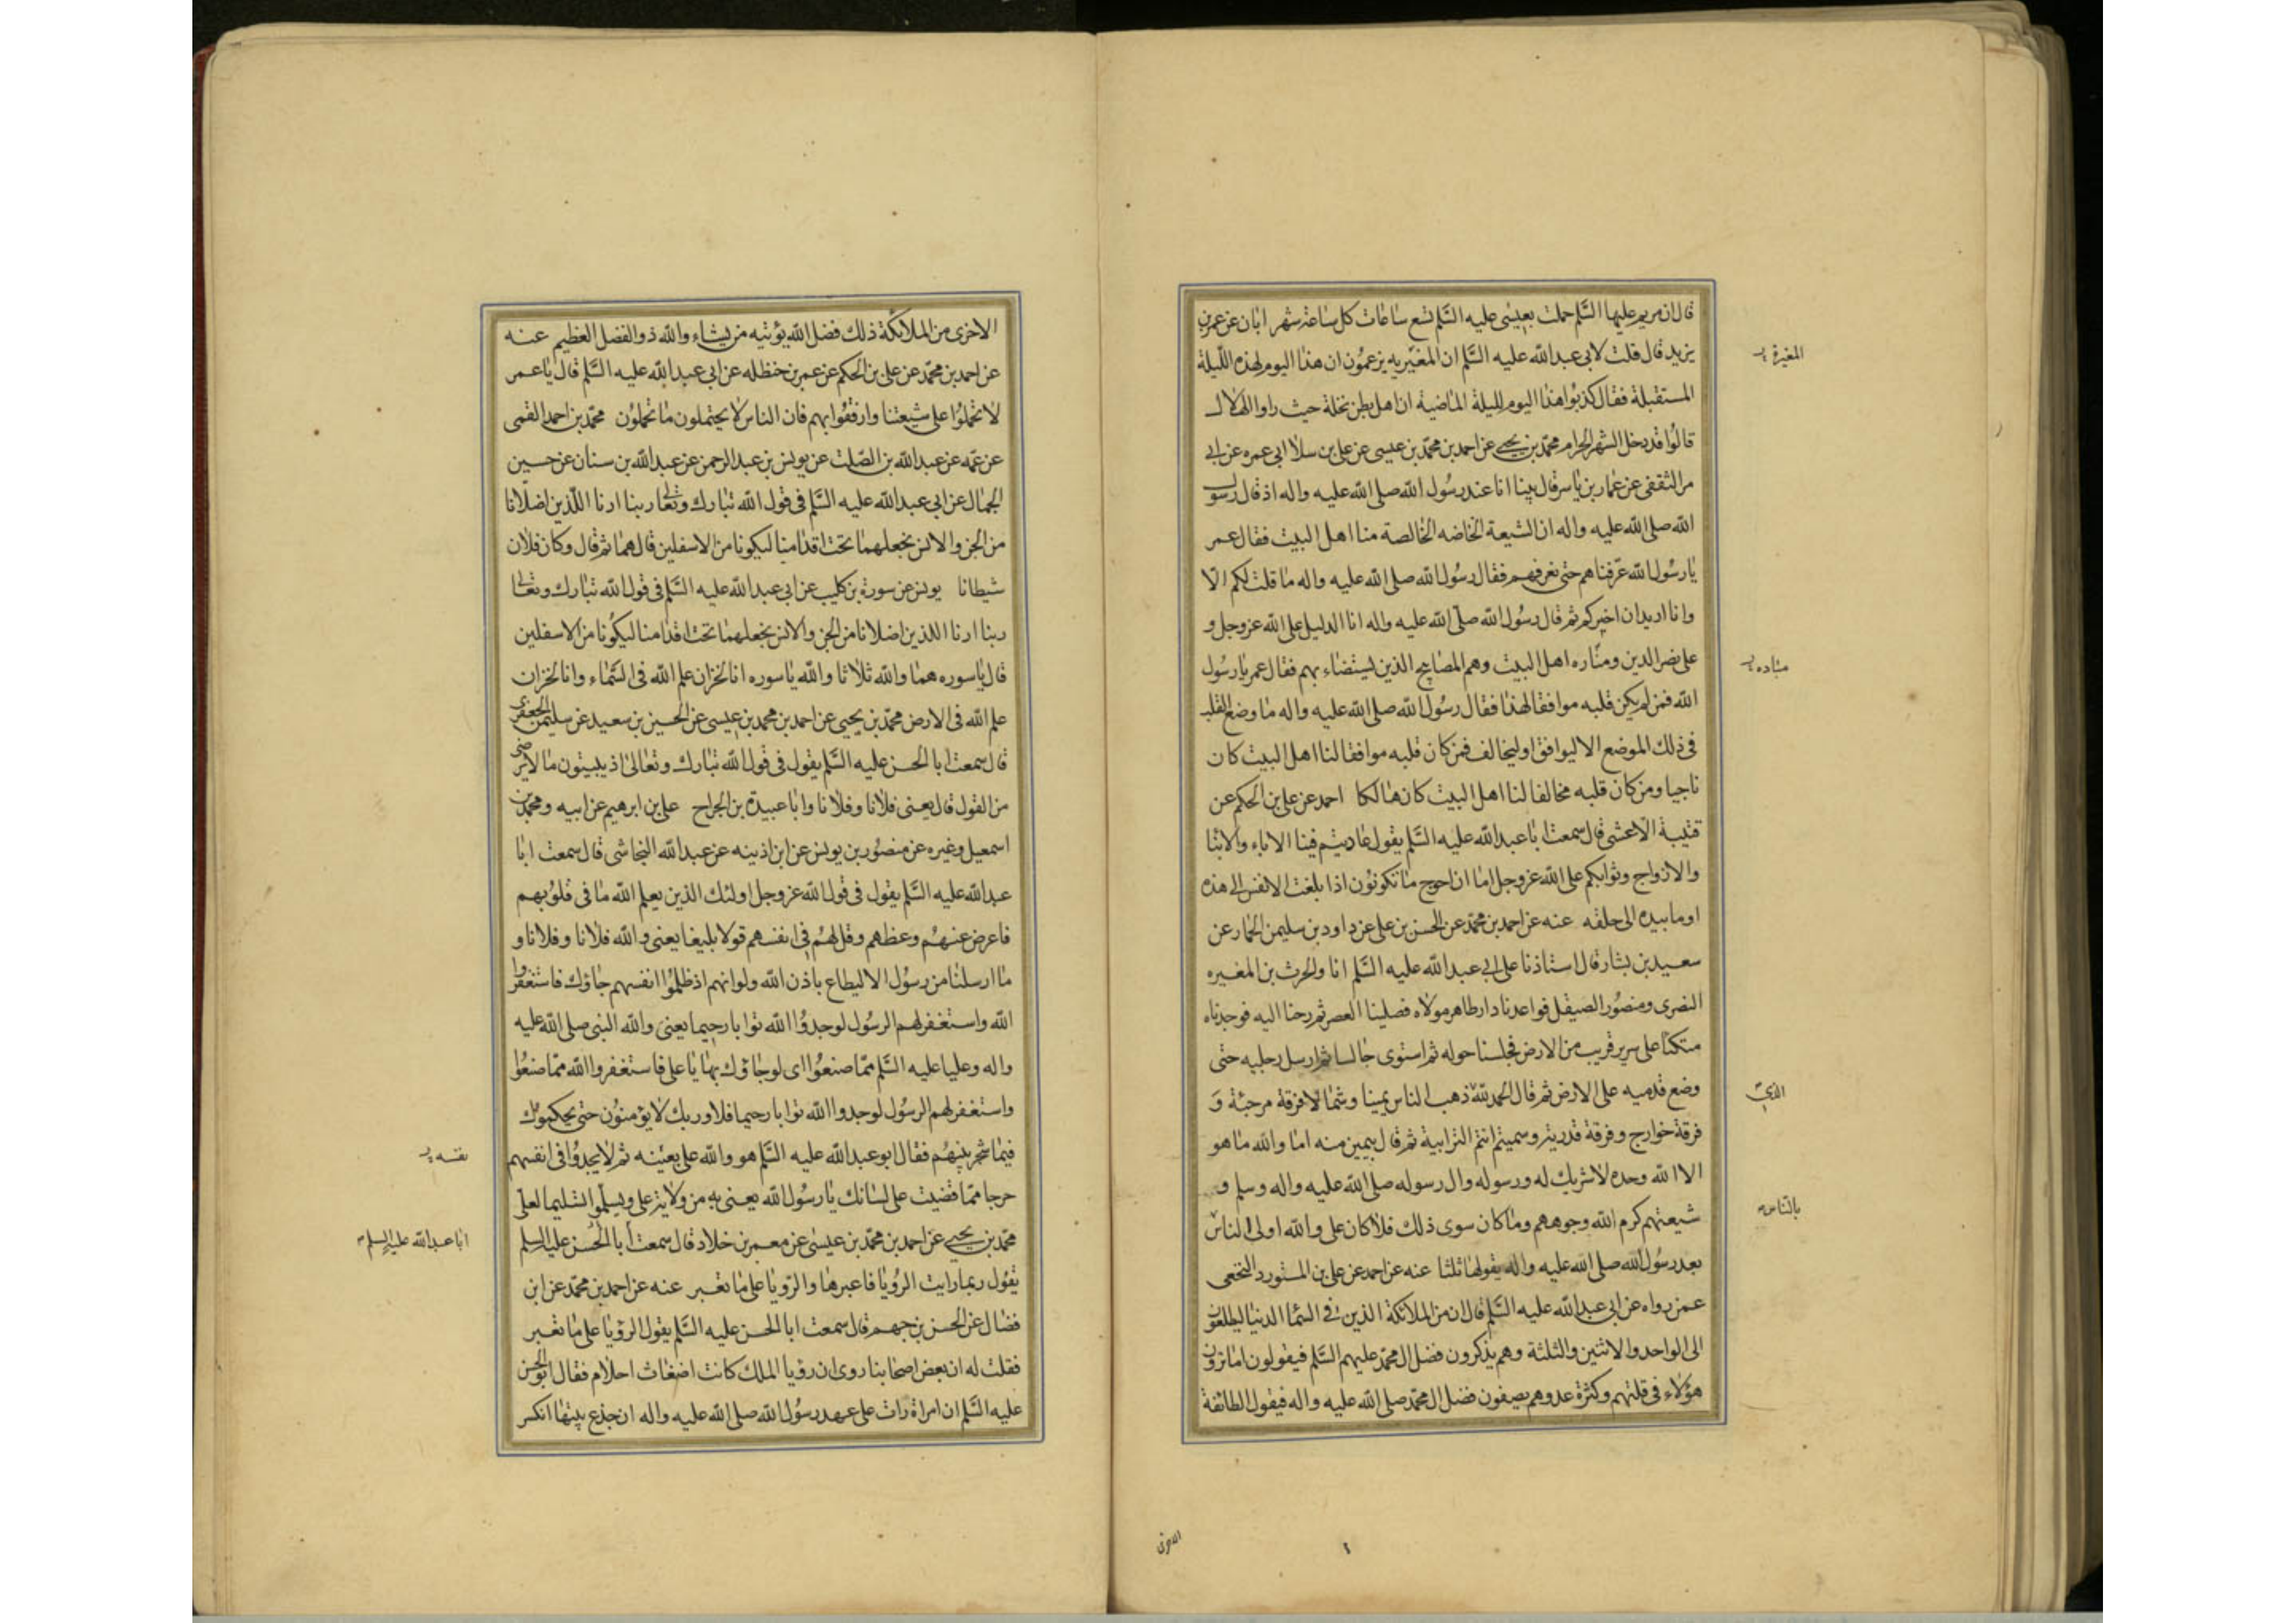 قال ان مريم عليها السلم حملت بعيسى عليه السلم تسع ساعات كل ساعة شهر ابان عن عمر بن
يزيد قال قلت لابى عبد الله عليه السلم ان المغيريه يزعمون ان هذا اليوم لهذه الليلة
المغيرة
المستقبلة فقال كذبوا هذا اليوم لليلة الماضية ان اهل بطن نخلة حيث راوا الهلال
قالوا قد دخل الشهر الحرام محمد بن يحيى عن احمد بن محمد بن عيسى عن على بن سلا ابى عمره عن ابى
مر الثقفى عن عمار بن ياسر قال بينا انا عند رسول الله صلى الله عليه واله اذ قال رسول
الله صلى الله عليه واله ان الشيعة الخاصه الخالصة منا اهل البيت فقال عمر
يا رسول الله عرفناهم حتى نعرفهم فقال رسول الله صلى الله عليه واله ما قلت لكم الا
وانا اريد ان اخبركم ثم قال رسول الله صلى الله عليه واله انا الدليل على الله عز وجل و
على نصر الدين ومناره اهل البيت وهم المصابيح الذين يستضاء بهم فقال عمر يا رسول
الله فمن لم يكن قلبه موافقا لهذا فقال رسول الله صلى الله عليه واله ما وضع القلب
فى ذلك الموضع الا ليوافق او ليخالف فمن كان قلبه موافقا لنا اهل البيت كان
ناجيا ومن كان قلبه مخالفا لنا اهل البيت كان هالكا احمد عن على بن الحكم عن
قتيبة الاعشى قال سمعت ابا عبد الله عليه السلم يقول عاديتم فينا الاباء والابنا
والازواج وثوابكم على الله عز وجل اما ان احوج ما تكونون اذا بلغت الانفس الى هذه
اوما بيده الى حلقه عنه عن احمد بن محمد عن الحسن بن على عن داود بن سليمن الحمار عن
سعيد بن يشار قال استاذنا على ابى عبد الله عليه السلم انا والحرث بن المغيره
النصرى ومنصور الصيقل فواعدنا دار طاهر مولاه فصلينا العصر ثم رحنا اليه فوجدناه
متكئا على سرير قريب من الارض فجلسنا حوله ثم استوى جالسا ثم ارسل رجليه حتى
وضع قدميه على الارض ثم قال الحمد لله ذهب الناس يمينا وشمالا فرقة مرجئة و
الذى
فرقة خوارج وفرقة قدرية وسميتم انتم الترابية ثم قال بيمين منه اما والله ما هو
الا الله وحده لا شريك له ورسوله وال رسوله صلى الله عليه واله وسلم و
شيعتهم كرم الله وجوههم وما كان سوى ذلك فلا كان على والله اولى الناس
بالناس
بعد رسول الله صلى الله عليه واله يقولها ثلثا عنه عن احمد عن على بن المستورد النخعى
عمن رواه عن ابى عبد الله عليه السلم قال ان من الملائكة الذين فى السما الدنيا ليطلعون
الى الواحد والاثنين والثلثة وهم يذكرون فضل ال محمد عليهم السلم فيقولون اما ترون
هؤلاء فى قلتهم وكثرة عدوهم يصفون فضل ال محمد صلى الله عليه واله فيقول الطائفة
الاخرى
الاخرى من الملائكة ذلك فضل الله يؤتيه من يشاء والله ذو الفضل العظيم عنه
عن احمد بن محمد عن على بن الحكم عن عمر بن حنظله عن ابى عبد الله عليه السلم قال يا عمر
لا تحملوا على شيعتنا وارفقوا بهم فان الناس لا يحتملون ما تحملون محمد بن احمد القمى
عن عمه عن عبد الله بن الصلت عن يونس بن عبد الرحمن عن عبد الله بن سنان عن حسين
الجمال عن ابى عبد الله عليه السلم فى قول الله تبارك وتعالى ربنا ارنا اللذين اضلانا
من الجن والانس نجعلهما تحت اقدامنا ليكونا من الاسفلين قال هما ثم قال وكان فلان
شيطانا يونس عن سورة بن كليب عن ابى عبد الله عليه السلم فى قول الله تبارك وتعالى
ربنا ارنا اللذين اضلانا من الجن والانس نجعلهما تحت اقدامنا ليكونا من الاسفلين
قال يا سوره هما والله ثلاثا والله يا سوره انا لخزان علم الله فى السماء وانا لخزان
علم الله فى الارض محمد بن يحيى عن احمد بن محمد بن عيسى عن الحسين بن سعيد عن سليمن الجعفرى
قال سمعت ابا الحسن عليه السلم يقول فى قول الله تبارك وتعالى اذ يبيتون ما لا يرضى
من القول قال يعنى فلانا وفلانا وابا عبيدة بن الجراح على بن ابرهيم عن ابيه ومحمد بن
اسمعيل وغيره عن منصور بن يونس عن ابن اذينه عن عبد الله النجاشى قال سمعت ابا
عبد الله عليه السلم يقول فى قول الله عز وجل اولئك الذين يعلم الله ما فى قلوبهم
فاعرض عنهم وعظهم وقل لهم فى انفسهم قولا بليغا يعنى والله فلانا وفلانا و
ما ارسلنا من رسول الا ليطاع باذن الله ولو انهم اذ ظلموا انفسهم جاؤك فاستغفروا
الله واستغفر لهم الرسول لوجدوا الله توابا رحيما يعنى والله النبى صلى الله عليه
واله وعليا عليه السلم مما صنعوا اى لو جاؤك بها يا على فاستغفروا الله مما صنعوا
واستغفر لهم الرسول لوجدوا الله توابا رحيما فلا وربك لا يؤمنون حتى يحكموك
فيما شجر بينهم فقال ابو عبد الله عليه السلم هو والله على بعينه ثم لا يجدوا فى انفسهم
نفسه
حرجا مما قضيت على لسانك يا رسول الله يعنى به من ولاية على ويسلموا تسليما لعلى
محمد بن يحيى عن احمد بن محمد بن عيسى عن معمر بن خلاد قال سمعت ابا الحسن عليه السلم
ابا عبد الله عليه السلم
يقول ربما رايت الرؤيا فاعبرها والرؤيا على ما تعبر عنه عن احمد بن محمد عن ابن
فضال عن الحسن بن جهم قال سمعت ابا الحسن عليه السلم يقول الرؤيا على ما تعبر
فقلت له ان بعض اصحابنا روى ان رؤيا الملك كانت اضغاث احلام فقال ابو الحسن
عليه السلم ان امراة رات على عهد رسول الله صلى الله عليه واله ان جذع بيتها انكسر